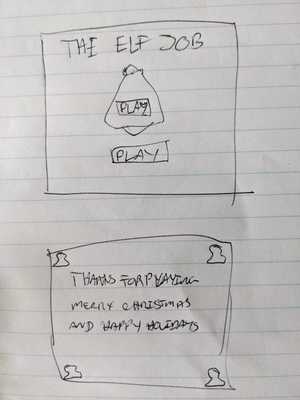 THE ELF JOB
PLAY
PLAY
THANKS FOR PLAYING
MERRY CHRISTMAS
AND HAPPY HOLIDAYS